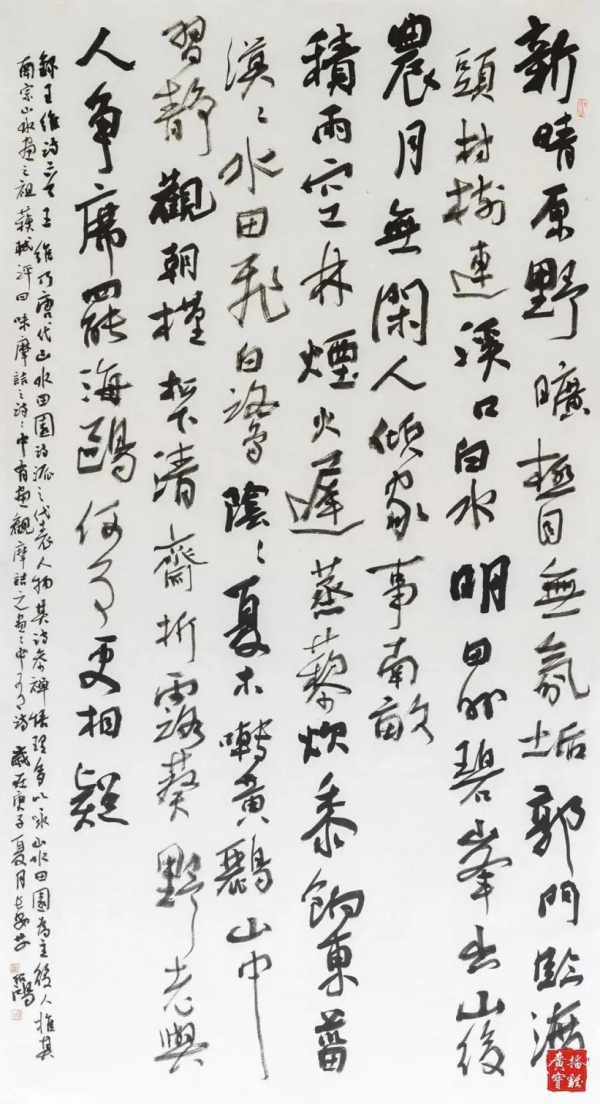 新晴原野曠極目無氛垢郭門臨渡
頭村樹連溪口白水明田外碧峯出山後
農月無閑人傾家事南畝
積雨空林煙火遲蒸藜炊黍餉東菑
漠〻水田飛白鷺陰〻夏木囀黃鸝山中
習靜觀朝槿松下清齋折露葵野老與
人爭席罷海鷗何事更相疑
錄王維詩二首王維乃唐代山水田園詩派之代表人物其詩參禪悟理多以詠山水田園為主後人推其
南宗山水畫之祖蘇軾評曰味摩詰之詩〻中有畫觀摩詰之畫〻中有詩歲在庚子夏月長安